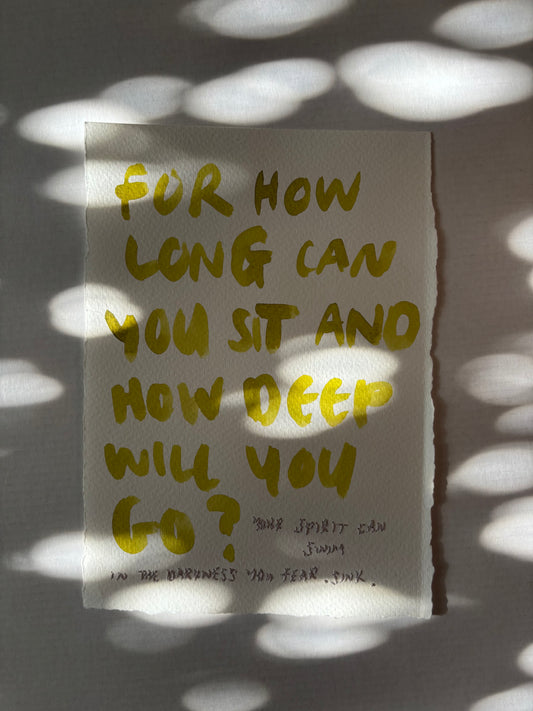 FOR HOW
LONG CAN
YOU SIT AND
HOW DEEP
WILL YOU
GO? YOUR SPIRIT CAN
SWIM
IN THE DARKNESS YOU FEAR. SINK.